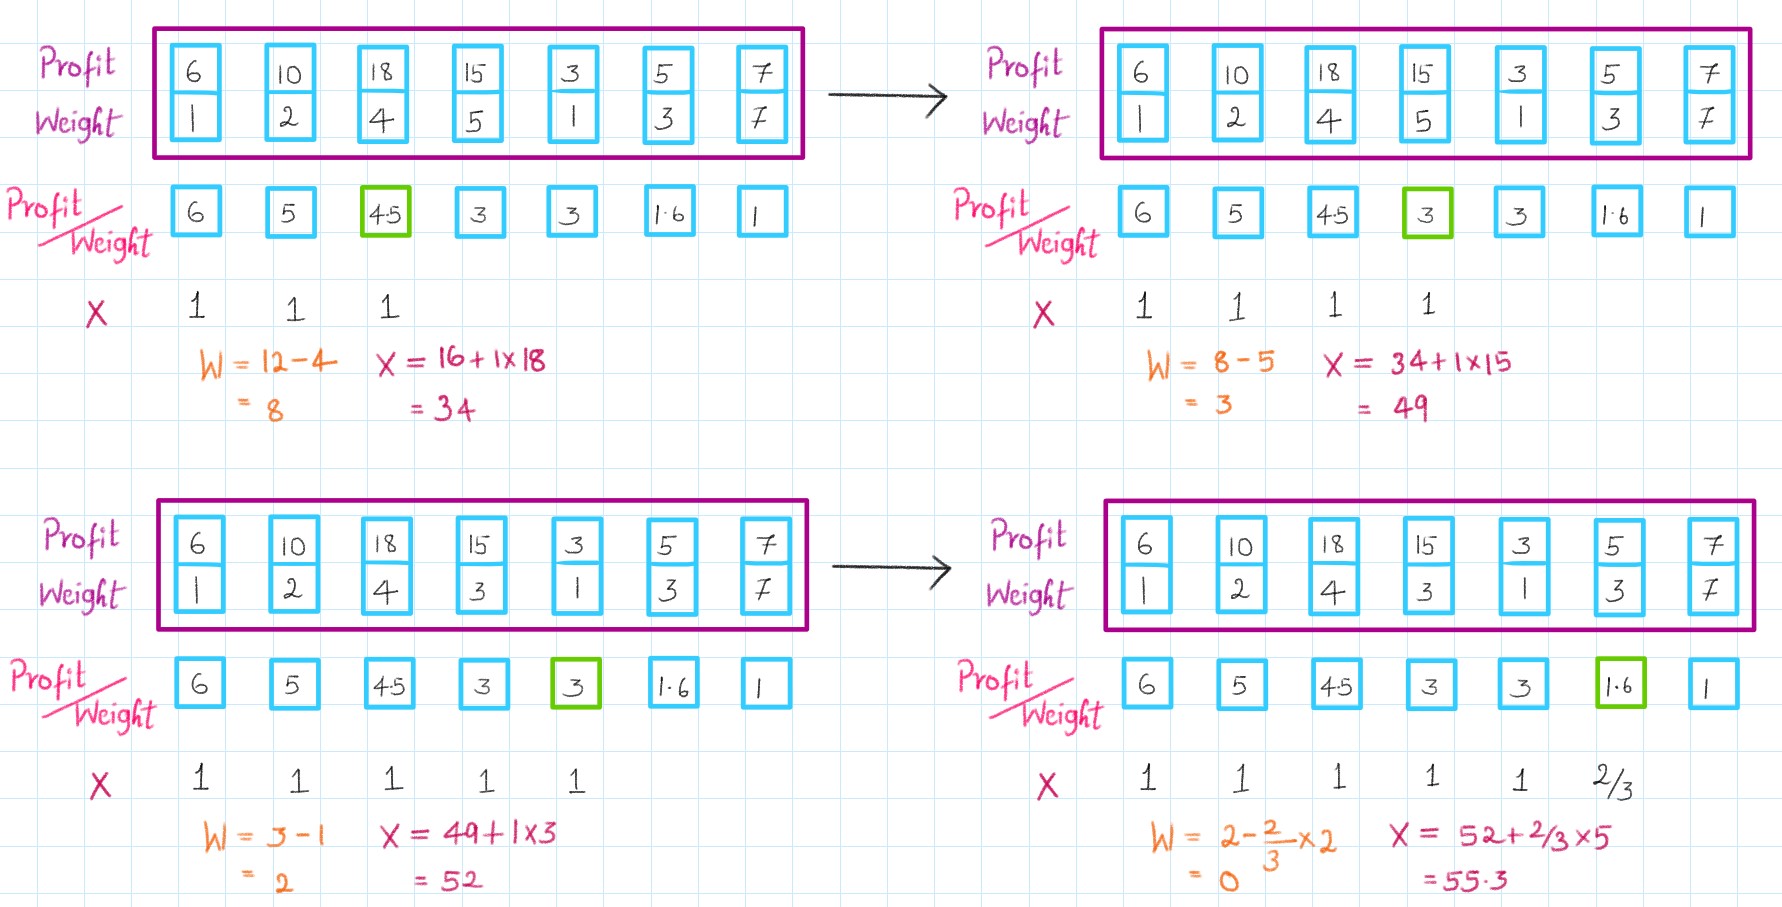 Profit 6 10 18 15 3 5 7
Weight 1 2 4 5 1 3 7
Profit/Weight 6 5 4.5 3 3 1.6 1
X 1 1 1
W = 12-4 X = 16+1x18
= 8 = 34
Profit 6 10 18 15 3 5 7
Weight 1 2 4 5 1 3 7
Profit/Weight 6 5 4.5 3 3 1.6 1
X 1 1 1 1
W = 8-5 X = 34+1x15
= 3 = 49
Profit 6 10 18 15 3 5 7
Weight 1 2 4 3 1 3 7
Profit/Weight 6 5 4.5 3 3 1.6 1
X 1 1 1 1 1
W = 3-1 X = 49+1x3
= 2 = 52
Profit 6 10 18 15 3 5 7
Weight 1 2 4 3 1 3 7
Profit/Weight 6 5 4.5 3 3 1.6 1
X 1 1 1 1 1 2/3
W = 2-2/3x2 X = 52+2/3x5
= 0 =55.3